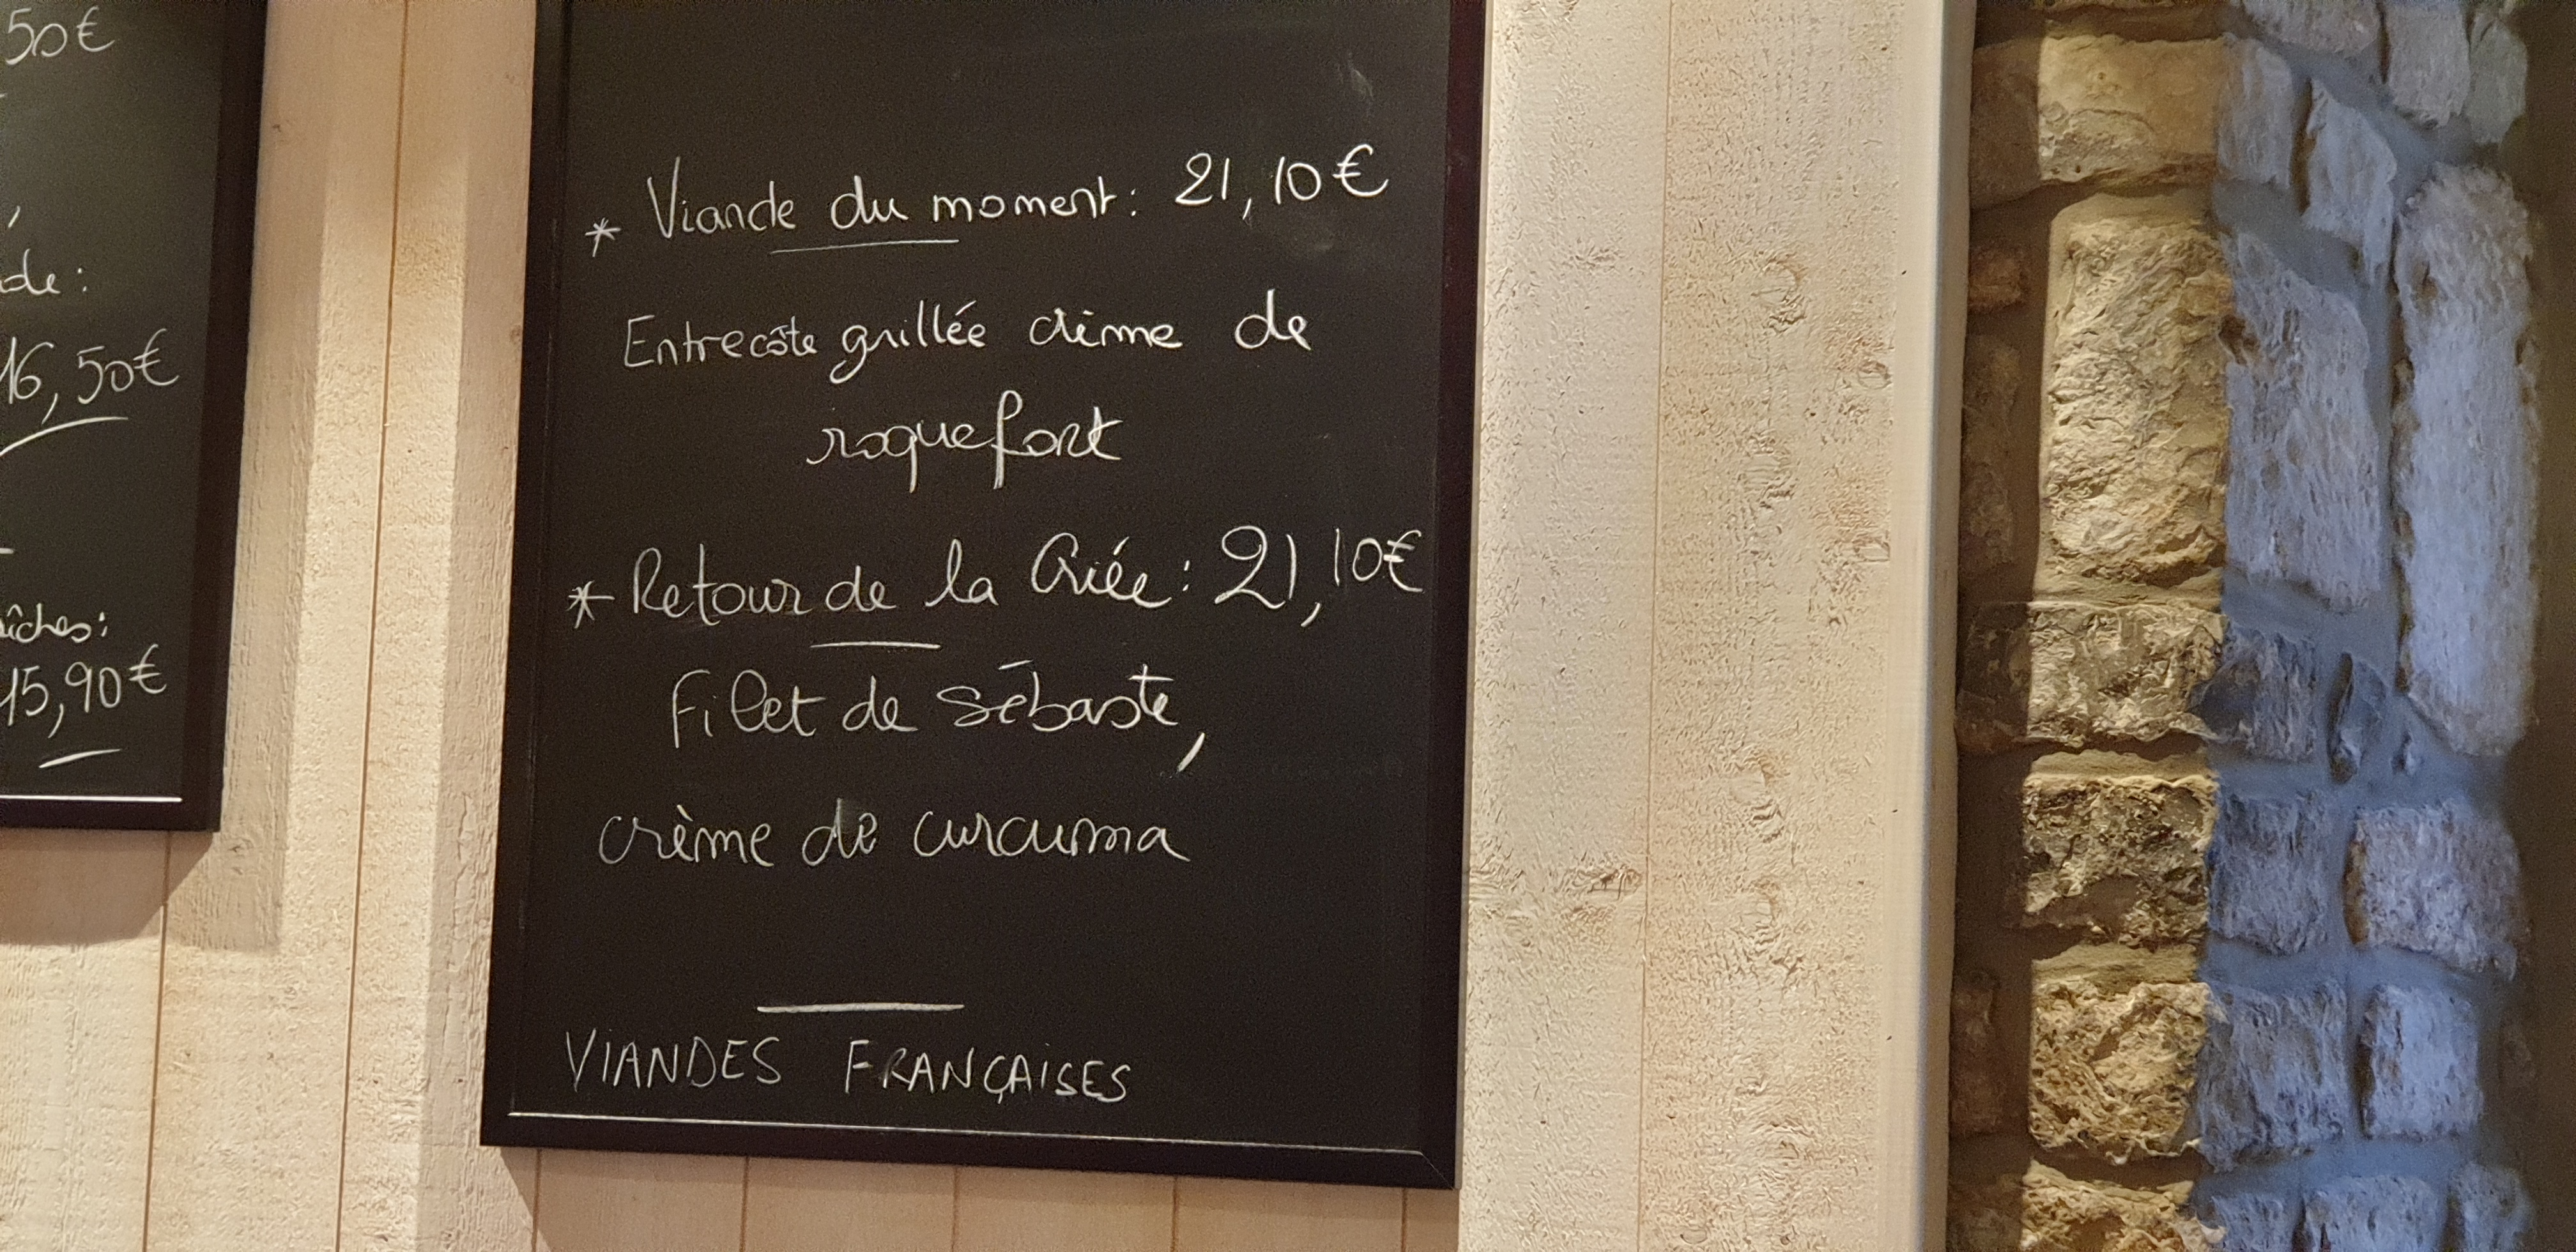 50€
de:
16,50€
15,90€
* Viande du moment: 21,10€
Entrecôte grillée crème de
roquefort
* Retour de la Criée: 21,10€
Filet de Sébaste,
crème de curcuma
VIANDES FRANÇAISES